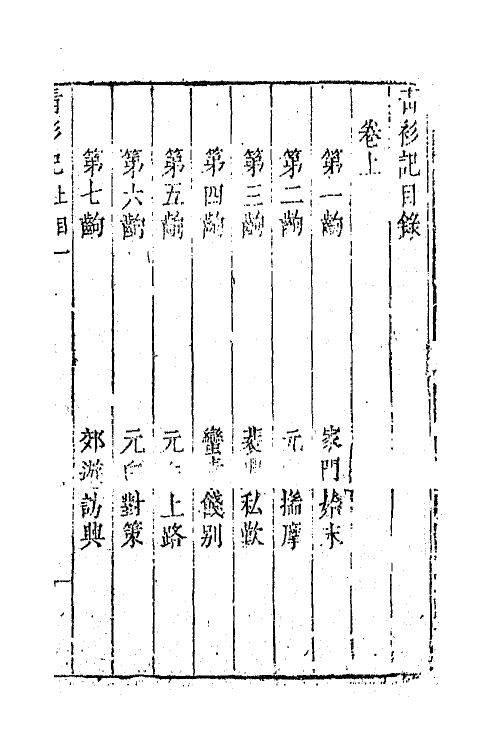 青衫記目錄
卷上
第一齣 家門始末
第二齣 元 揣摩
第三齣 裴興私歎
第四齣 蠻素餞別
第五齣 元白上路
第六齣 元白對策
第七齣 郊遊訪興
青衫記上目一